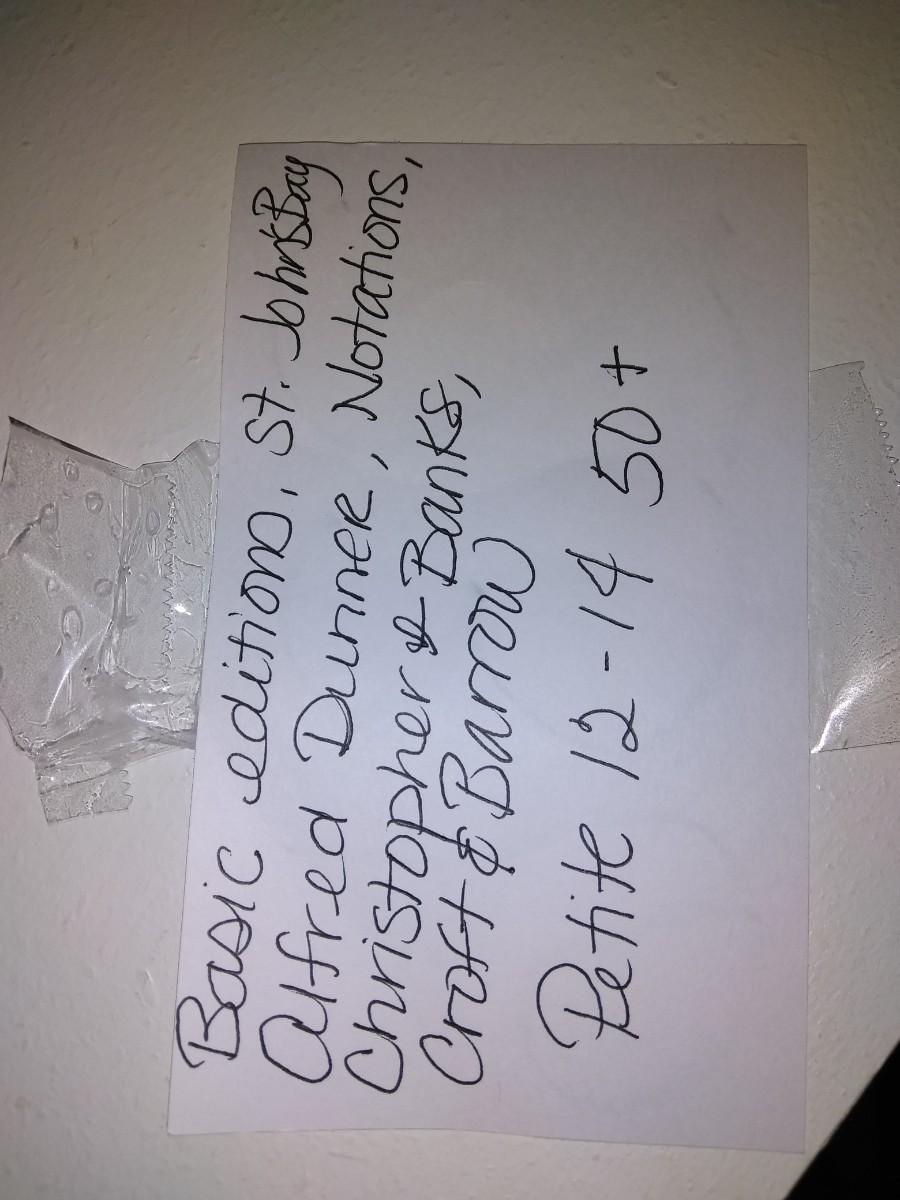 Basic editions, St. John's Bay
Alfred Dunner, Notations,
Christopher & Banks,
Croft & Barrow
Petite 12-14 50+